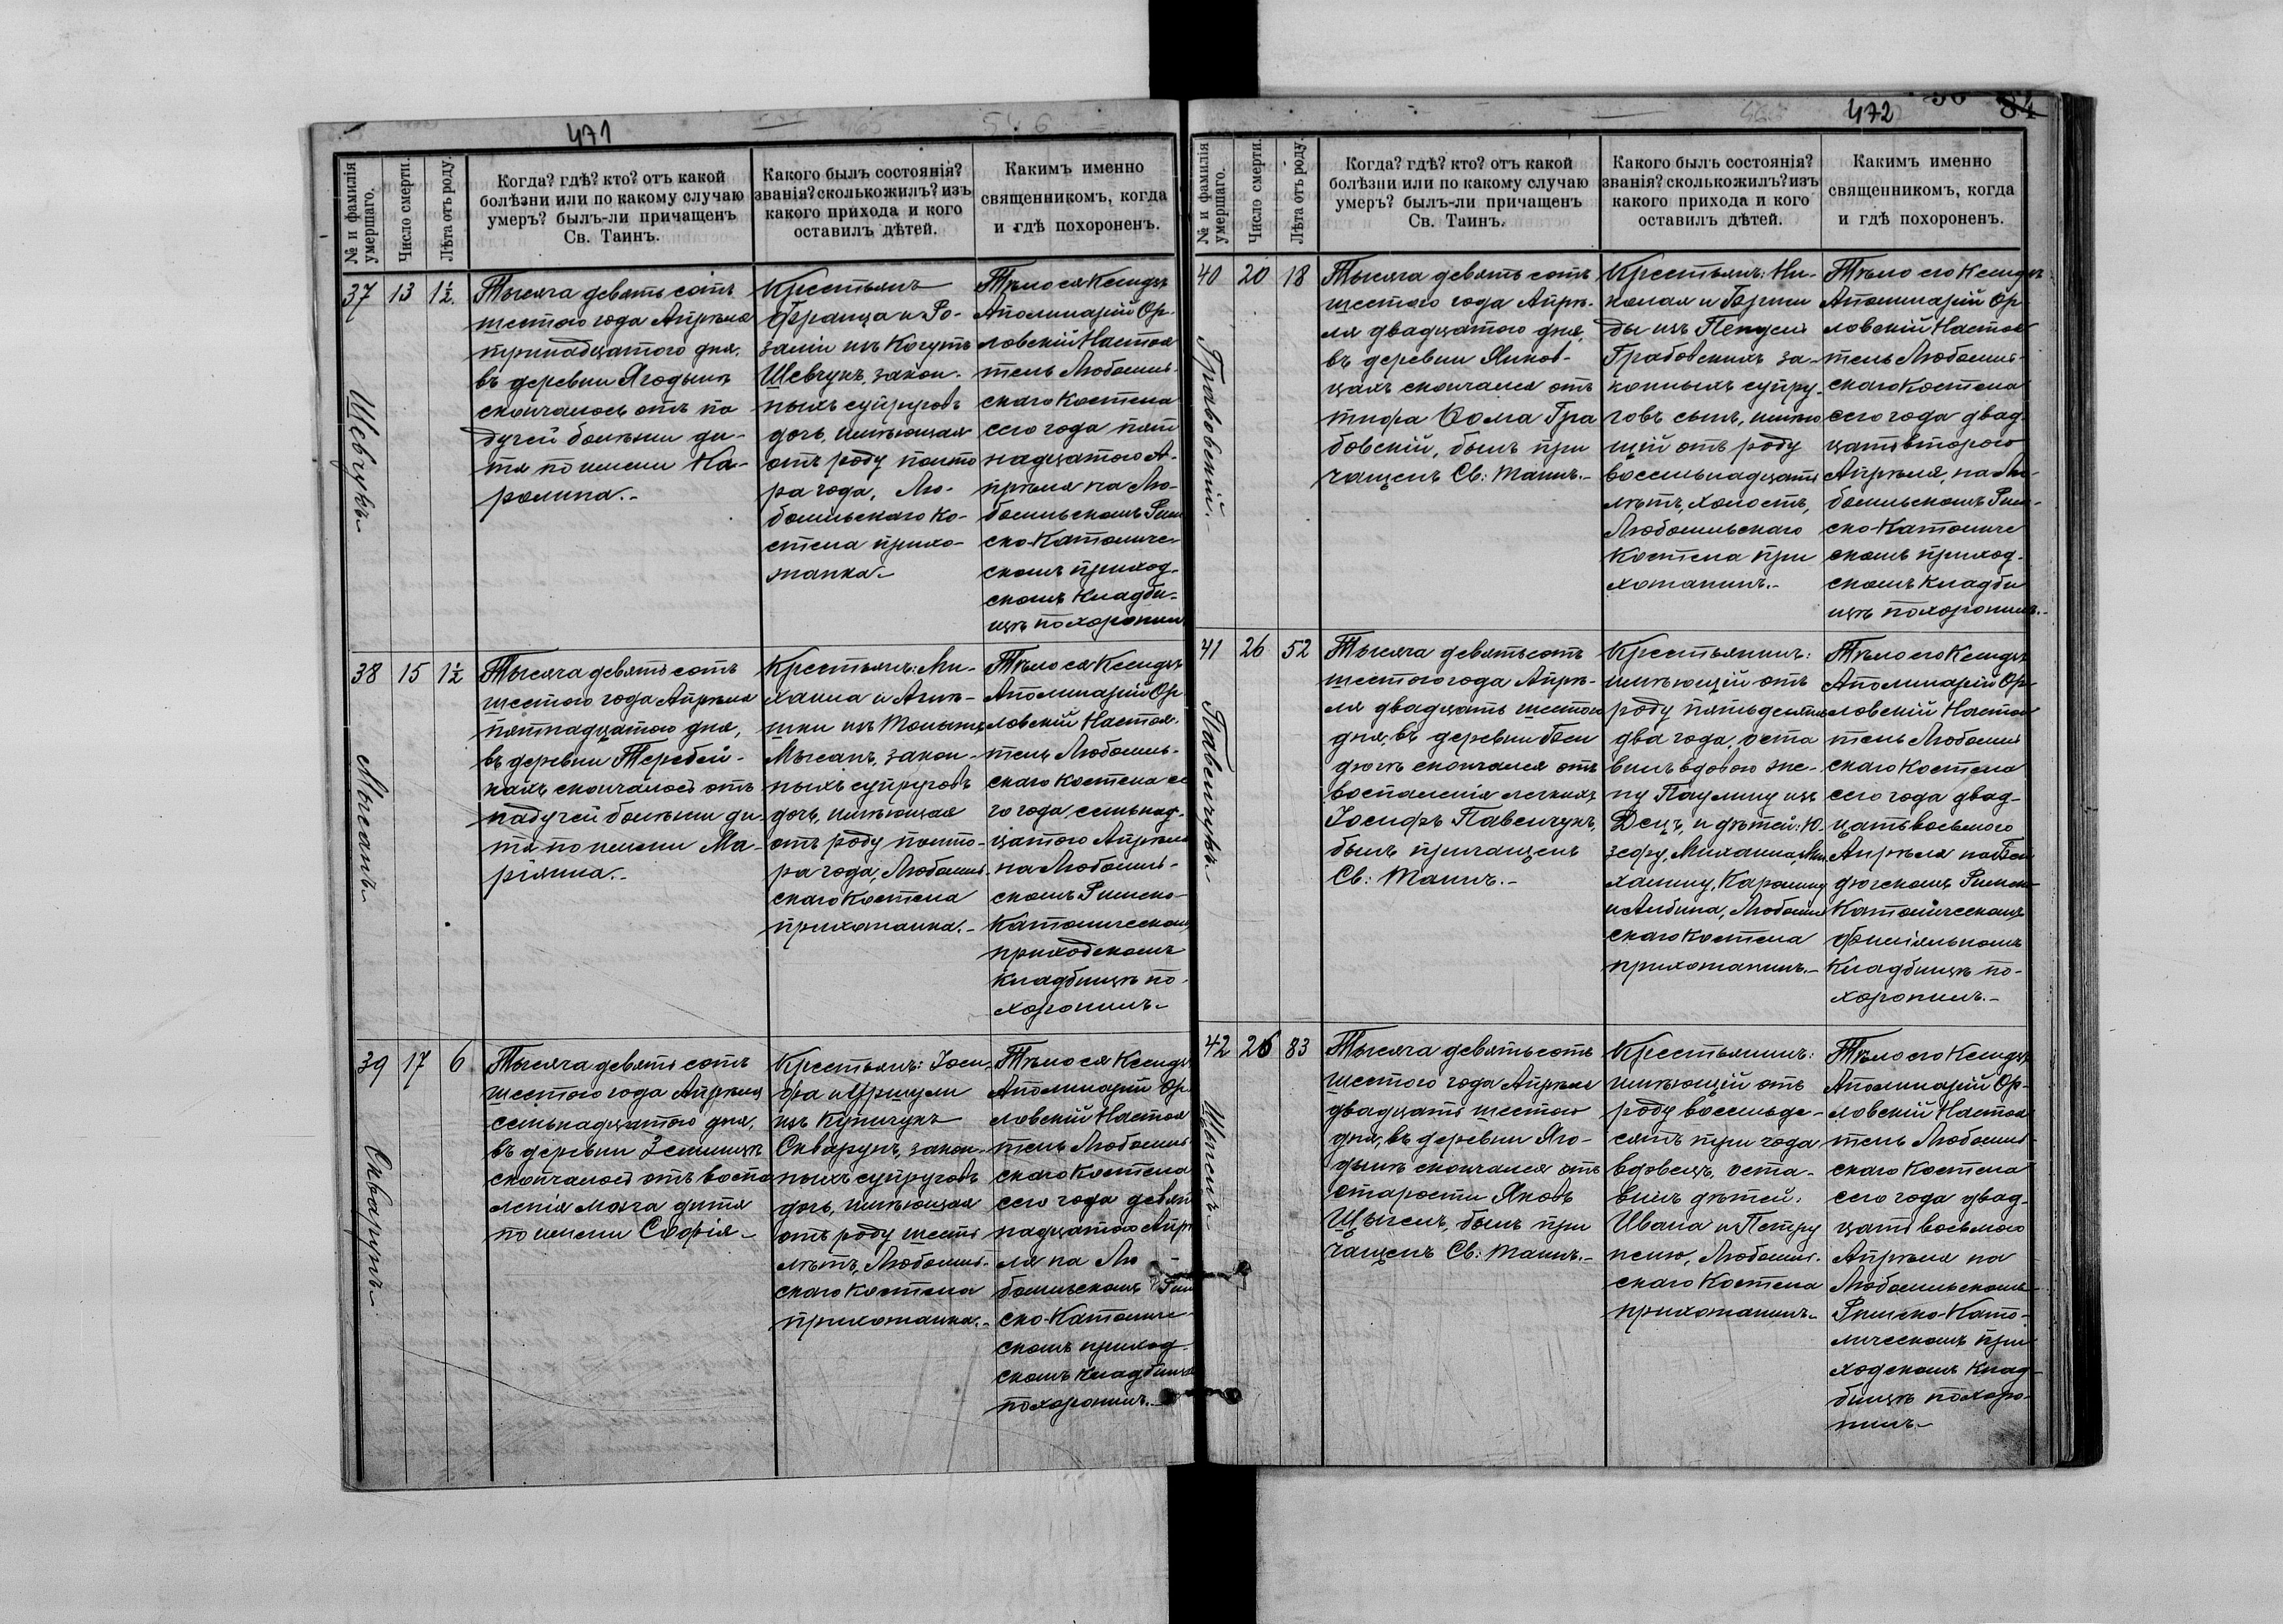 471
№ и фамилія умершаго.
Число смерти.
Лѣта отъ роду.
Когда? гдѣ? кто? отъ какой
болѣзни или по какому случаю
умеръ? былъ-ли причащенъ
Св. Таинъ.
Какого былъ состоянія?
званія? сколько жилъ? изъ
какого прихода и кого
оставилъ дѣтей.
Какимъ именно
священникомъ, когда
и гдѣ похороненъ.
37
Шевчукъ
13
1½
Тысяча девять сотъ
шестого года Апрѣля
тринадцатого дня,
въ деревни Ягодынѣ
скончалось отъ па
дучей болѣзни ди-
тя по имени Ка-
ролина.-
Крестьянъ
Франца и Ро-
заліи изъ Когутъ
Шевчукъ, закон-
ныхъ супруговъ
дочь, имѣющая
отъ роду полто
ра года, Лю-
бомльскаго Ко-
стела прихо-
жанка.-
Тѣло ея Ксендзъ
Аполинарій Ор-
ловскій Настоя
тель Любомль-
скаго Костела
сего года пят
надцатого А-
прѣля на Лю-
бомльскомъ Рим
ско-Католиче-
скомъ приход-
скомъ кладби-
щѣ похоронил
38
Мысанъ
15
1½
Тысяча девять сотъ
шестого года Апрѣля
пятнадцатого дня,
въ деревни Теребей-
кахъ скончалось отъ
падучей болѣзни ди-
тя по имени Ма-
ріянна.-
Крестьянъ: Ми-
хаила и Агнѣ-
шки изъ
Мысанъ, закон-
ныхъ супруговъ
дочь, имѣющая
отъ роду полто-
ра года, Любомль-
скаго Костела
прихожанка.-
Тѣло ея Ксендзъ
Аполинарій Ор
ловскій Настоя-
тель Любомль-
скаго Костела се
го года семьнад-
цатого Апрѣля
на Любомль-
скомъ Римско-
Католическомъ
приходскомъ
кладбищѣ по-
хоронилъ.-
39
Скварунъ
17
6
Тысяча девять сотъ
шестого года Апрѣля
семьнадцатого дня,
въ деревни Землицѣ
скончалось отъ воспа
ленія мозга дитя
по имени Софія.-
Крестьянъ: Іоси-
фа и Уршули
изъ Куничукъ
Скварунъ, закон-
ныхъ супруговъ
дочь, имѣющая
отъ роду шесть
лѣтъ, Любомль-
скаго Костела
прихожанка.-
Тѣло ея Ксендзъ
Аполинарій Ор-
ловскій Настоя
тель Любомль-
скаго Костела
сего года девят
надцатого Апрѣ
ля на Лю-
бомльскомъ Рим
ско-Католиче-
скомъ приход-
скомъ кладбищѣ
похоронилъ.-
472
84
№ и фамилія умершаго.
Число смерти.
Лѣта отъ роду.
Когда? гдѣ? кто? отъ какой
болѣзни или по какому случаю
умеръ? былъ-ли причащенъ
Св. Таинъ.
Какого былъ состоянія?
званія? сколько жилъ? изъ
какого прихода и кого
оставилъ дѣтей.
Какимъ именно
священникомъ, когда
и гдѣ похороненъ.
40
Грабовскій.
20
18
Тысяча девять сотъ
шестого года Апрѣ-
ля двадцатого дня,
въ деревни Янков-
цахъ скончался отъ
тифа Ѳома Гра
бовскій, былъ при
чащенъ Св: Таинъ.-
Крестьянъ: Ни-
колая и
ды изъ
Грабовскихъ за-
конныхъ супру-
говъ сынъ, имѣю
щій отъ роду
восемьнадцать
лѣтъ, холостъ,
Любомльскаго
Костела при
хожанинъ.-
Тѣло его Ксендзъ
Аполинарій Ор
ловскій Настоя
тель Любомль-
скаго Костела
сего года двад-
цать второго
Апрѣля, на Лю-
бомльскомъ Рим-
ско-Католиче
скомъ приход-
скомъ кладби
щѣ похоронилъ.-
41
Павельчукъ
26
52
Тысяча девятьсотъ
шестого года Апрѣ-
ля двадцать шестого
дня, въ деревни Бен
дюгѣ скончался отъ
воспаленія легкихъ
Іосифъ Павельчукъ,
былъ причащенъ
Св: Таинъ.-
Крестьянинъ:
имѣющій отъ
роду пятьдесятъ
два года, оста
вилъ вдовою же-
ну Паулину изъ
Децъ, и дѣтей: Ю-
зефу, Михаила, Ми-
халину, Каролину
и Альбина, Любомль
скаго Костела
прихожанинъ.-
Тѣло его Ксендзъ
Аполинарій Ор-
ловскій Настоя
тель Любомль
скаго Костела
сего года двад-
цать восьмого
Апрѣля на Бен
дюгскомъ Римско-
Католическомъ
филіяльномъ
кладбищѣ по-
хоронилъ.-
42
Щыгелъ
26
83
Тысяча девятьсотъ
шестого года Апрѣля
двадцать шестого
дня, въ деревни Яго-
дынѣ скончался отъ
старости Яковъ
Щыгелъ, былъ при
чащенъ Св: Таинъ.-
Крестьянинъ:
имѣющій отъ
роду восемьде-
сятъ три года
вдовецъ, оста-
вилъ дѣтей:
Ивана и Петру
нелю, Любомль-
скаго Костела
прихожанинъ.-
Тѣло его Ксендзъ
Аполинарій Ор-
ловскій Настоя
тель Любомль-
скаго Костела
сего года двад-
цать восьмого
Апрѣля на
Любомльскомъ
Римско-Като-
лическомъ при
ходскомъ клад-
бищѣ похоро-
нилъ.-